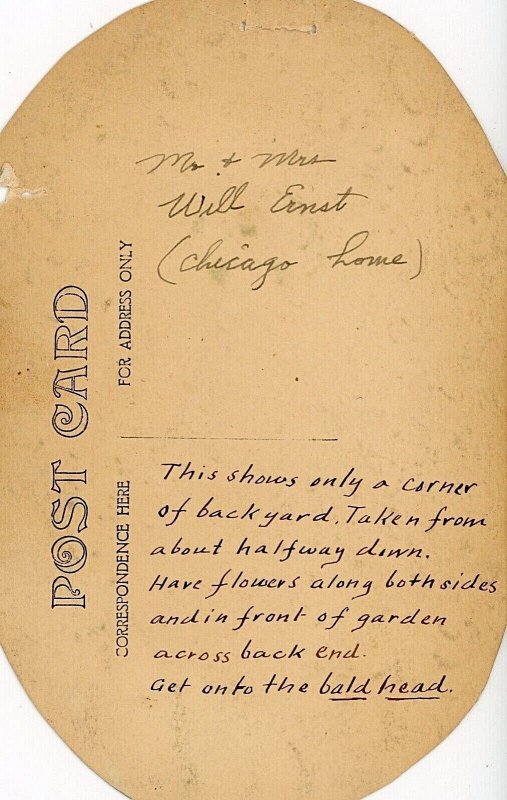 Mr & Mrs
Will Ernst
(Chicago home)
POST CARD
FOR ADDRESS ONLY
CORRESPONDENCE HERE
This shows only a corner
of backyard. Taken from
about halfway down.
Have flowers along both sides
and in front of garden
across back end.
Get onto the bald head.